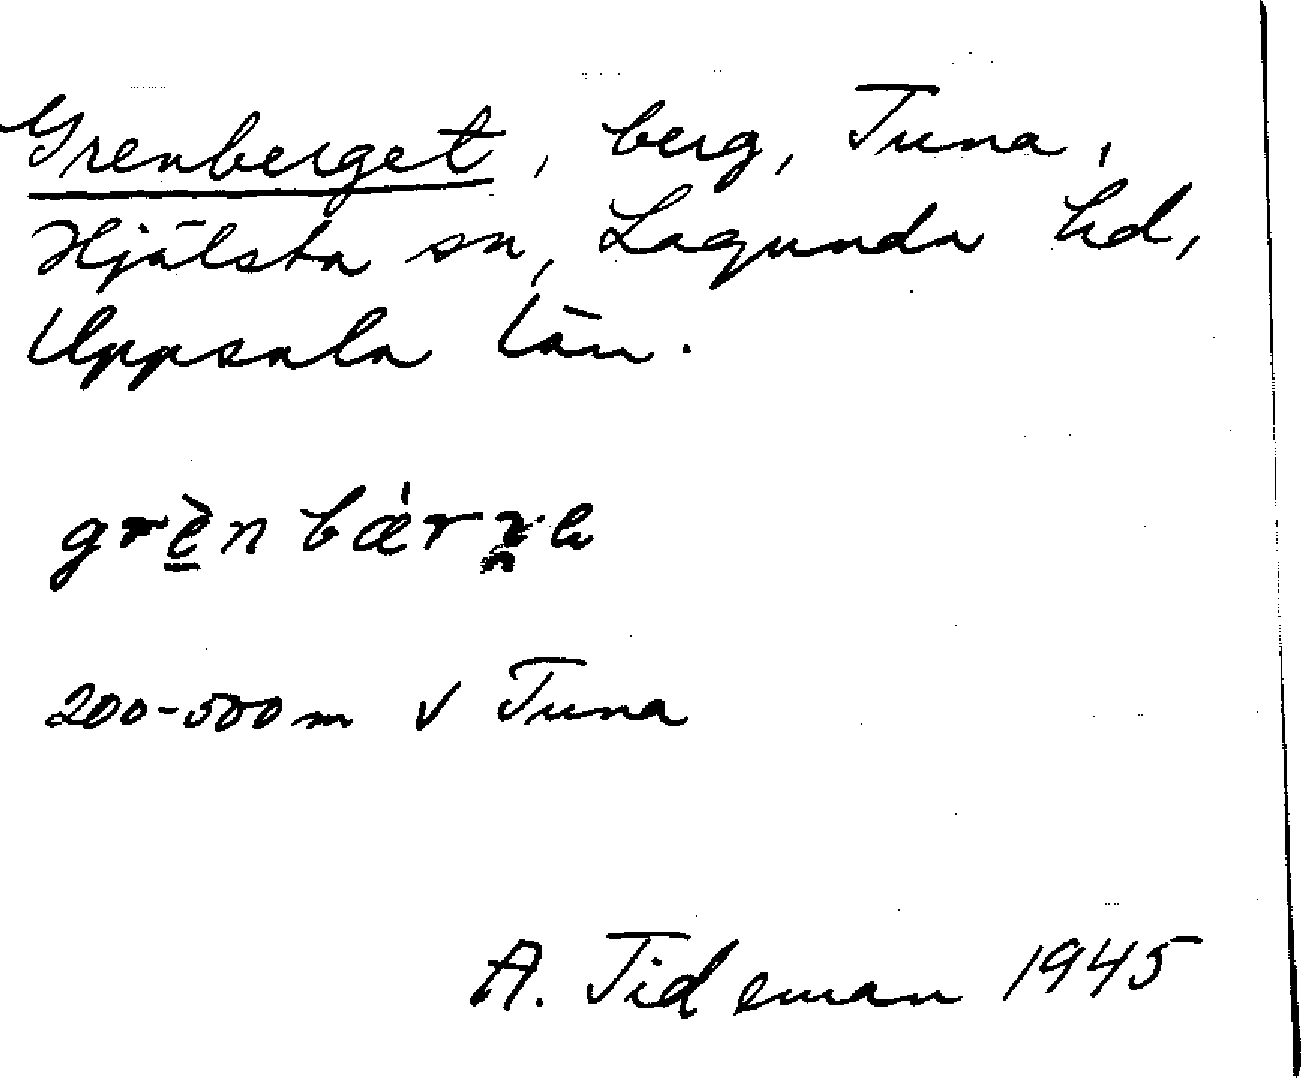 Grenberget, berg, Tuna,
Hjälsta sn, Lagunda hd,
Uppsala län.
grèn bǽr
200-500 m V Tuna
A. Tideman 1945